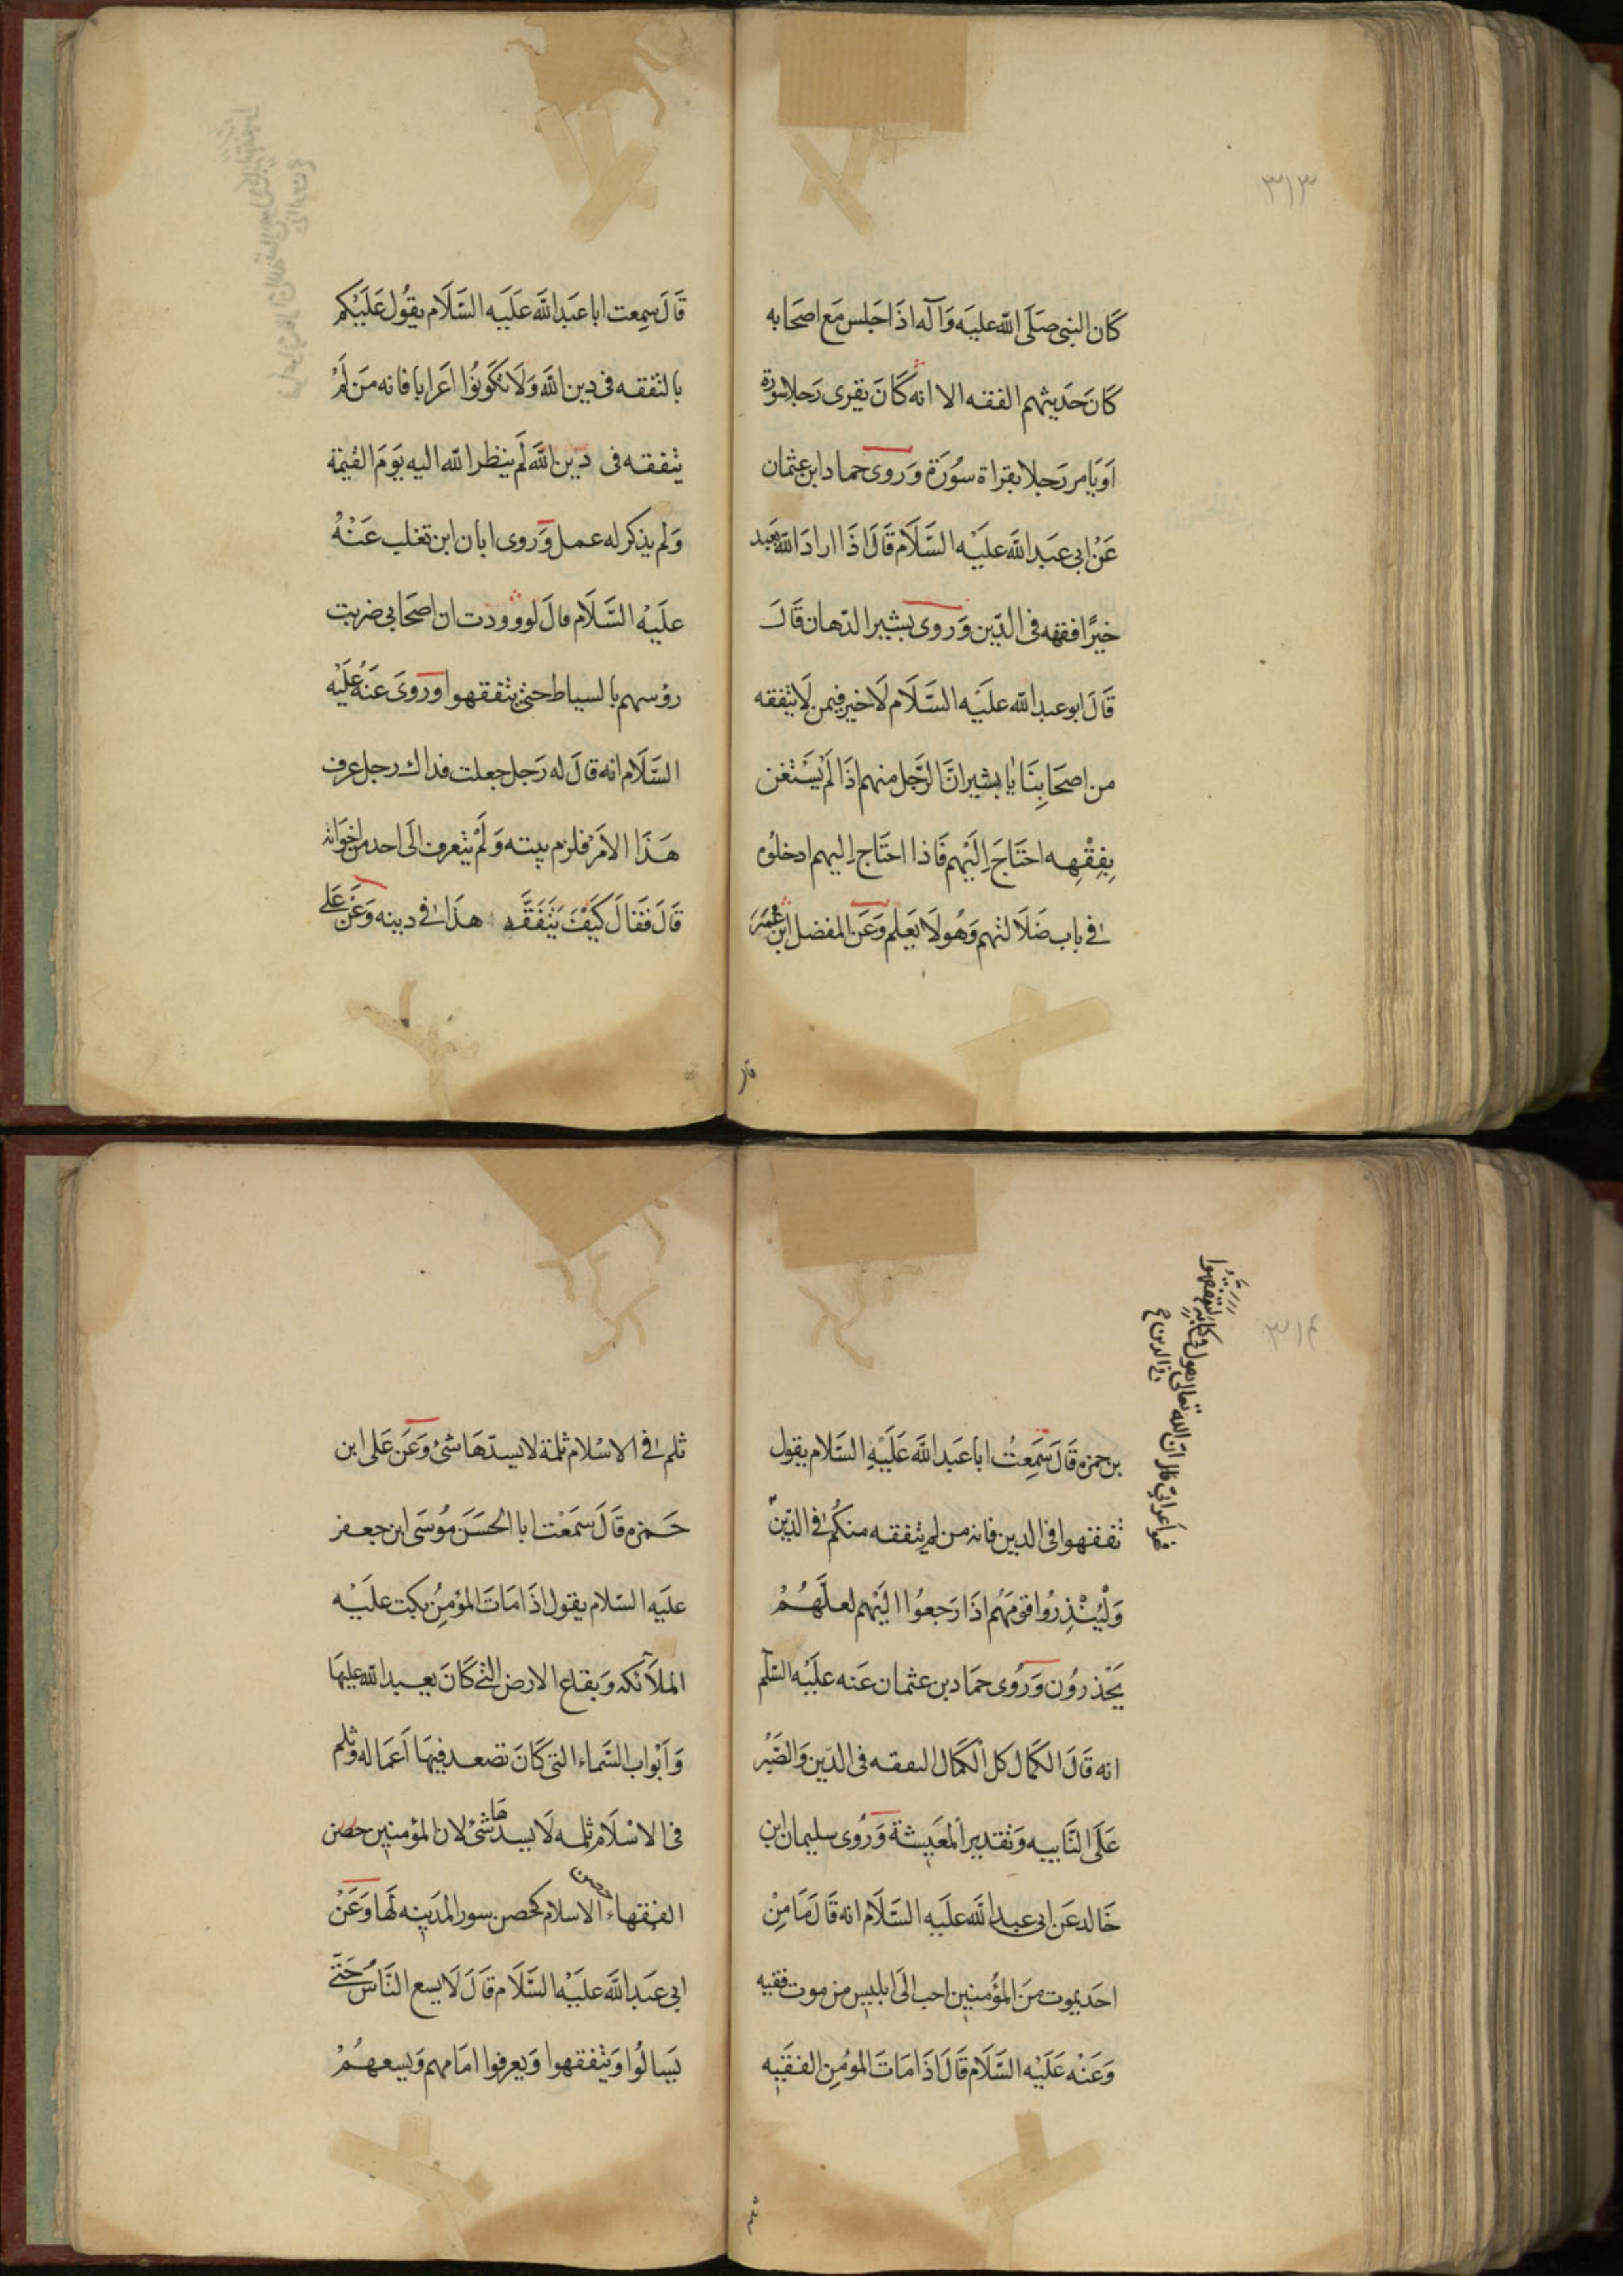 ٣١٣
كَان النبى صَلَّى اللّه عليه وَآله اذَا جَلس مَع اصحَابه
كَانَ حَديثهم الفقه الا انه كَانَ يقرى رَجلا سورة
اَو يَامر رَجلا بقراة سُورَة وَروى حماد ابن عثمان
عَنْ ابى عبَد اللَّه عليْه السَّلَام قَالَ اذَا ارادَ اللّه بعَبد
خيرًا فقهه فى الدّين وَروى بشير الدّهان قَالَ
قَالَ ابو عبد اللّه علَيْه السَّلَام لَا خير فيمن لَا يتفقه
من اصحَابِنَا يٰا بشير انَّ الرَّجل منهم اذَا لَمْ يَسْتَغن
بِفِقْهِه احْتَاجَ اِلَيْهم فَاذا احتَاج اِليهم ادخلوُه
فى باب ضَلَالتهم وَهُو لَا يَعلم وَعَن المفضل ابْن عُمَر
قَالَ سِمعت ابا عَبَد اللَّه عَليَه السَّلَام يقُول عَلَيْكم
بالتفقه فى دين اللَّه وَلَا تكَونُوا اَعرابا فانه مَن لَمْ
يتفقه فى دين اللَّه لَم ينظر اللّه اليه يَومَ القيٰمة
وَلم يذكر له عمل وَروى ابان ابن تغلب عَنْهُ
عليَهْ السَّلَام قالَ لو وددت ان اصحَابى ضربت
رؤسهم بالسياط حتى يتفقهوا وَروىَ عَنْهُ عَلَيْه
السَّلَام انه قالَ له رَجل جعلت فداك رجل عرف
هَذَا الاَمْر فلزم بيته وَلَمْ يتعرف الَى احد من اِخوَانه
قَالَ فَقالَ كَيْفَ يَتَفَقَّه هذَا فى دينه وَعَنْ عَلى
٣١۴
بن حمزه قَالَ سَمَعِتُ ابا عَبد اللَّه عَليَْهِ السَّلام يقول
تفقهوا فى الدين فانه من لم يتفقه منكُم فى الدّين
فهو اَعرابىّ قال انّ اللّه تعالى يقول فى كتابه ليَتَفَقَّهُوا
فى الدين
وَلْيُنْذِرُوا قومَهُم اذَا رَجعوُا الَيْهم لعلَّهُمْ
يَحْذَروُن وَرُوى حمَاد بن عثمان عَنه علَيْه السّلم
انه قَالَ الكَمال كل الكَمَال التفقه فى الدّين وَالصَبْر
عَلَى النَّايبه وَتقدير المَعيِشة وَرُوى سليمان ابن
خَالد عَن ابى عبد اللَّه عليَه السَّلَام انه قَالَ مَا مِنْ
احَد يموت مَن المؤمنين احب الَى ابليس من موت فقيه
وَعَنْه عَلَيْه السَّلَام قَالَ اذَا مَاتَ المومُن الفقَيه
ثلم فى الاسْلام ثلمة لا يسدّهَا شىء وَعَن عَلى ابن
حَمزه قَالَ سَمعَْت ابا الحَسَن مُوسَى ابن جعفر
عليَه السّلام يقول اذَا مَاتَ المؤمِنُ بكت علَيْه
الملآئكه وَبقاع الارض التى كَانَ يعبد اللّه عليها
وَابْواب السَّماء التى كَانَ تصعد فيهَا اَعمَاله وَثلم
فى الاسْلَام ثلمه لَا يسدّهَا شىء لان المؤمنين حصن
الفقهاء حصن الاسلام كحصن سور المدَينه لَها وَعَنْ
ابى عبَد اللَّه عليَْه السَّلَام قَالَ لَا يسع النَّاسُ حَتّى
يَسالُوا وَيتفقهوا وَيعرفوا امَامهم وَيسعهُمْ